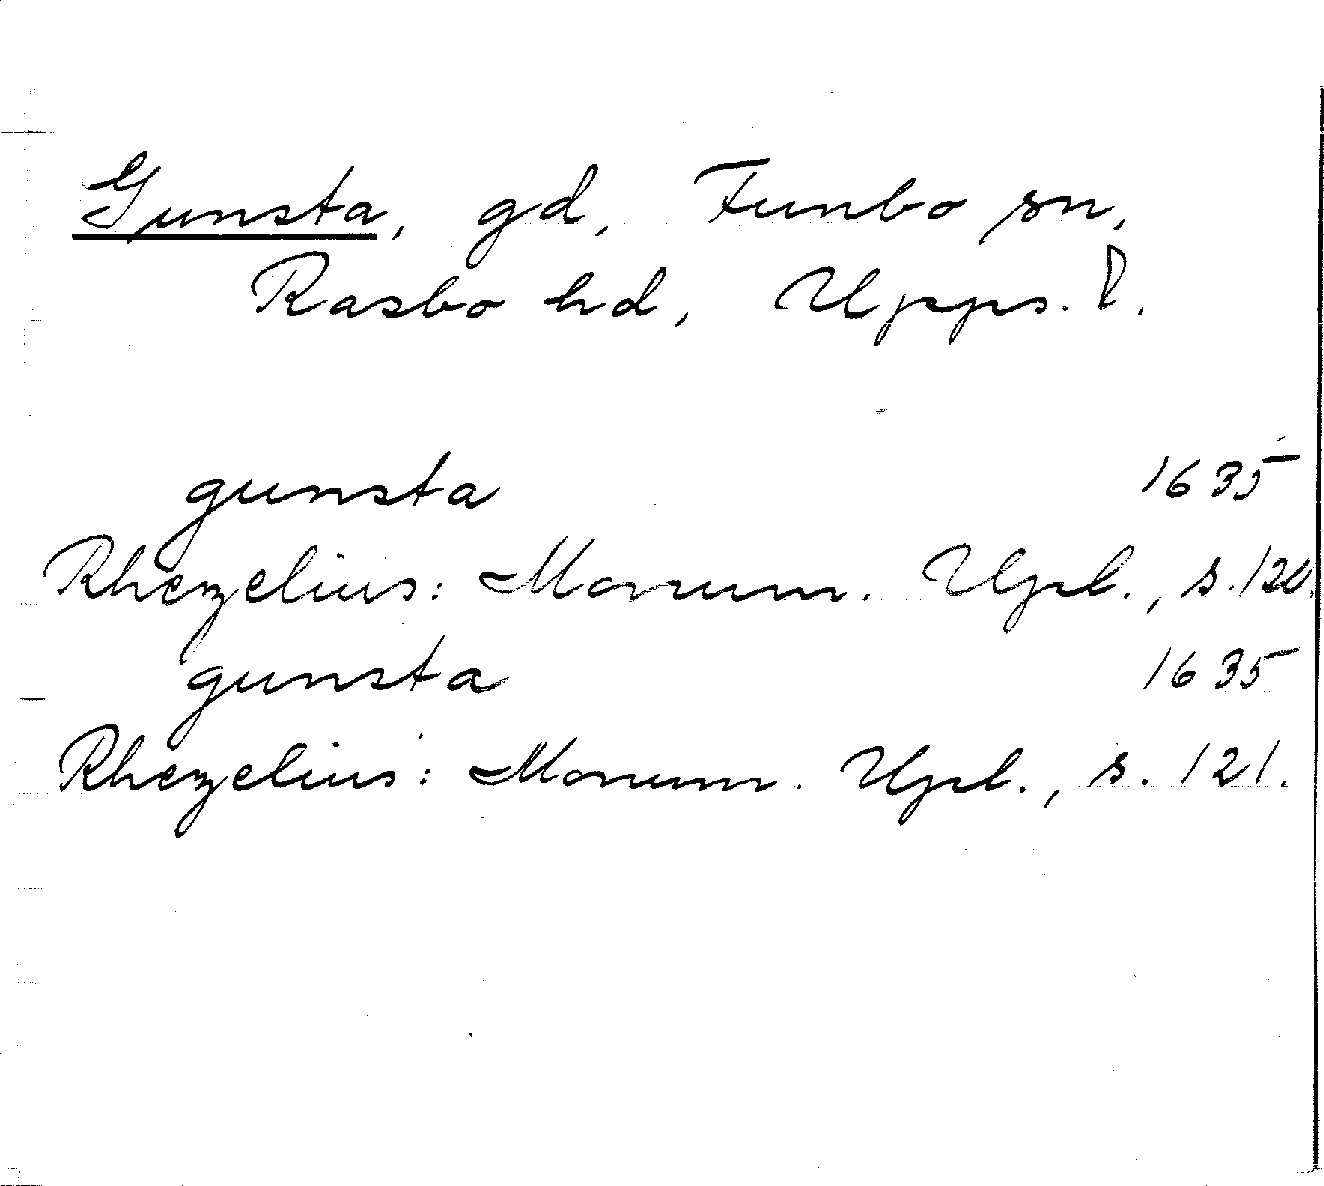 Gunsta, gd, Funbo sn,
Rasbo hd, Upps. l.
gunsta 1635
Rhezelius: Monum. Upl., s. 120.
gunsta 1635
Rhezelius: Monum. Upl., s. 121.